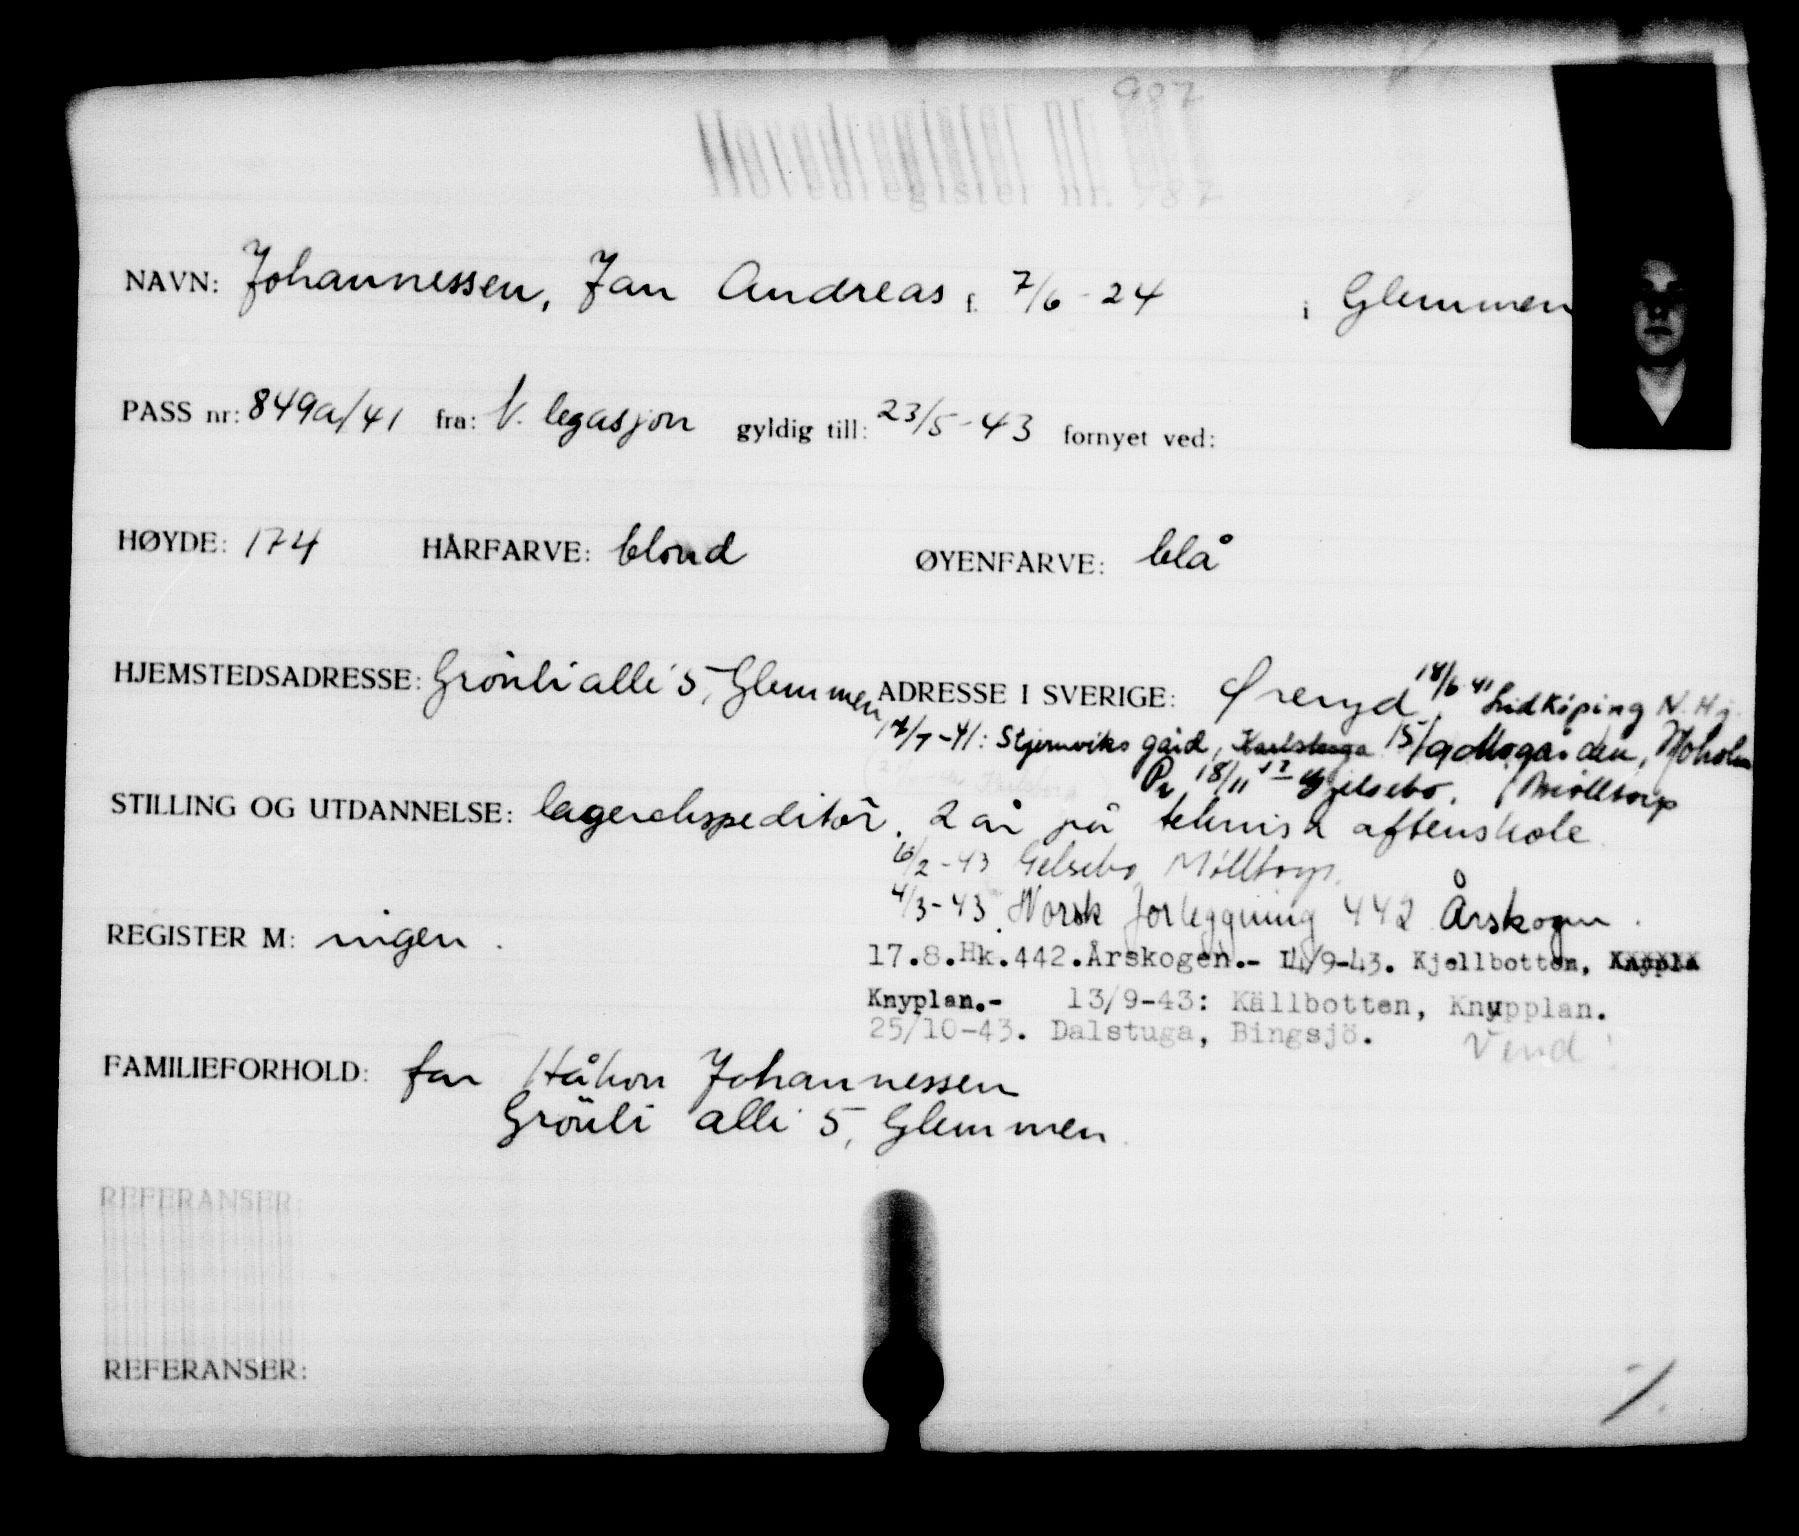 907
Hovedregister nr. 987
NAVN: Johannessen, Jan Andreas f. 7/6-24 i Glemmen
PASS nr: 849a/41 fra: N. legasjon gyldig till: 23/5-43 fornyet ved:
HØYDE: 174 HÅRFARVE: blond ØYENFARVE: blå
HJEMSTEDSADRESSE: Grönli allé 5, Glemmen ADRESSE I SVERIGE: Øreryd 18/6 41 Lidköping N. Hj.
17/7-41: Stjernviks gård, Karlstuga 15/9 Mogården, Moholm
18/11 Gjelsebo, Mölltorp
STILLING OG UTDANNELSE: lagerekspeditör. 2 år på teknisk aftenskole
16/2-43 Gelsebo Mölltorp.
4/3-43 Norsk forleggning 442 Årskogen.
REGISTER M: ingen.
17.8.Hk.442.Årskogen.- 14/9-43. Kjellbotten, Knypla
Knyplan.- 13/9-43: Källbotten, Knypplan.
25/10-43. Dalstuga, Bingsjö. Vend!
FAMILIEFORHOLD: far Håkon Johannessen
Grönli allé 5, Glemmen.
REFERANSER:
REFERANSER: